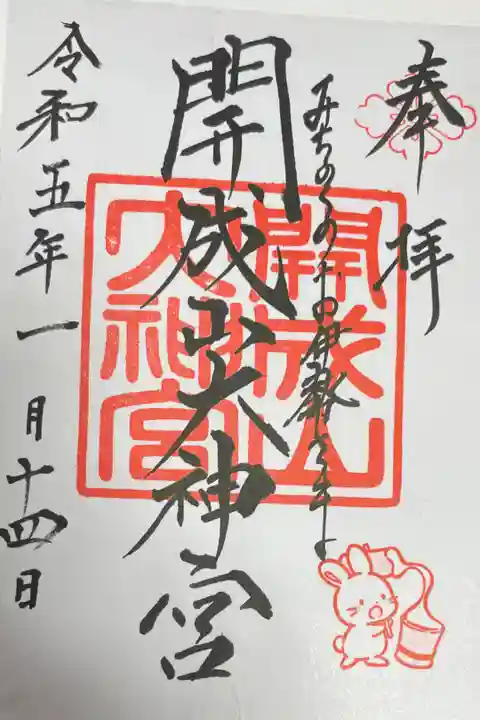 奉拝
みちのくのお伊勢さま
開成山大神宮
開成山
大神宮
令和五年一月十四日